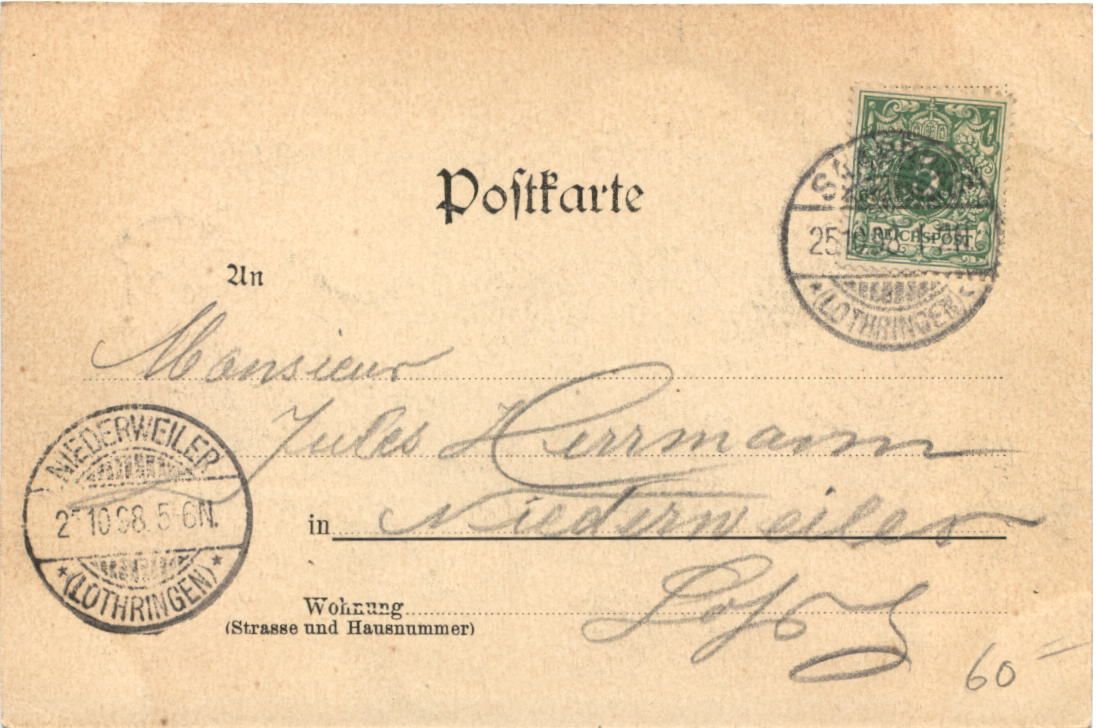 Postkarte
5
REICHSPOST
25.10.98
(LOTHRINGEN)
An
Monsieur
Jules Herrmann
in Niederweiler
NIEDERWEILER
10 98. 5-6N.
*(LOTHRINGEN)*
Wohnung
(Strasse und Hausnummer)
60